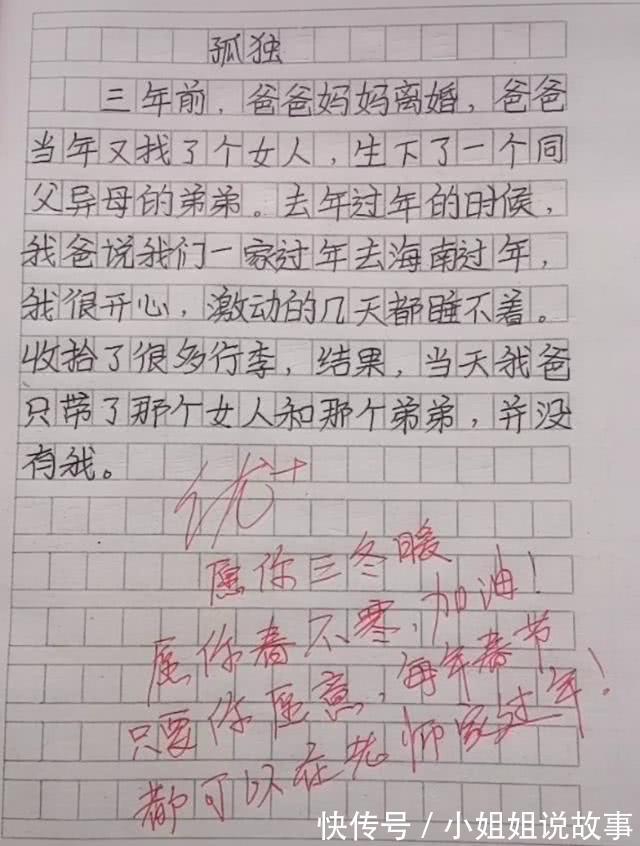 孤独
三年前，爸爸妈妈离婚，爸爸
当年又找了个女人，生下了一个同
父异母的弟弟。去年过年的时候，
我爸说我们一家过年去海南过年，
我很开心，激动的几天都睡不着。
收拾了很多行李，结果，当天我爸
只带了那个女人和那个弟弟，并没
有我。
优+
愿你三冬暖
愿你春不寒，加油！
只要你愿意，每年春节
都可以在老师家过年！
快传号／小姐姐说故事